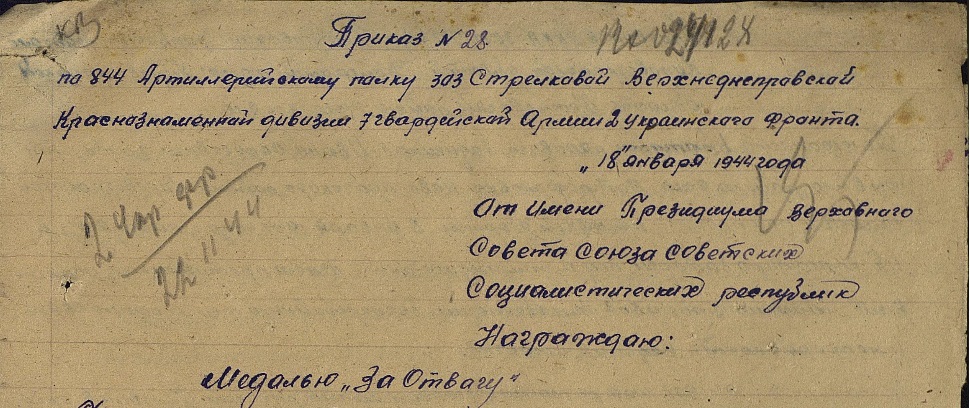 КВ
Приказ N 28.
по 844 Артиллерийскому полку 303 Стрелковой Верхнеднепровской
Краснознаменной дивизии 7 гвардейской Армии 2 Украинского Фронта.
„18" января 1944 года
От имени Президиума Верховного
Совета Союза Советских
Социалистических республик
Награждаю:
2 Укр фр
22 11 44
Медалью „За Отвагу"